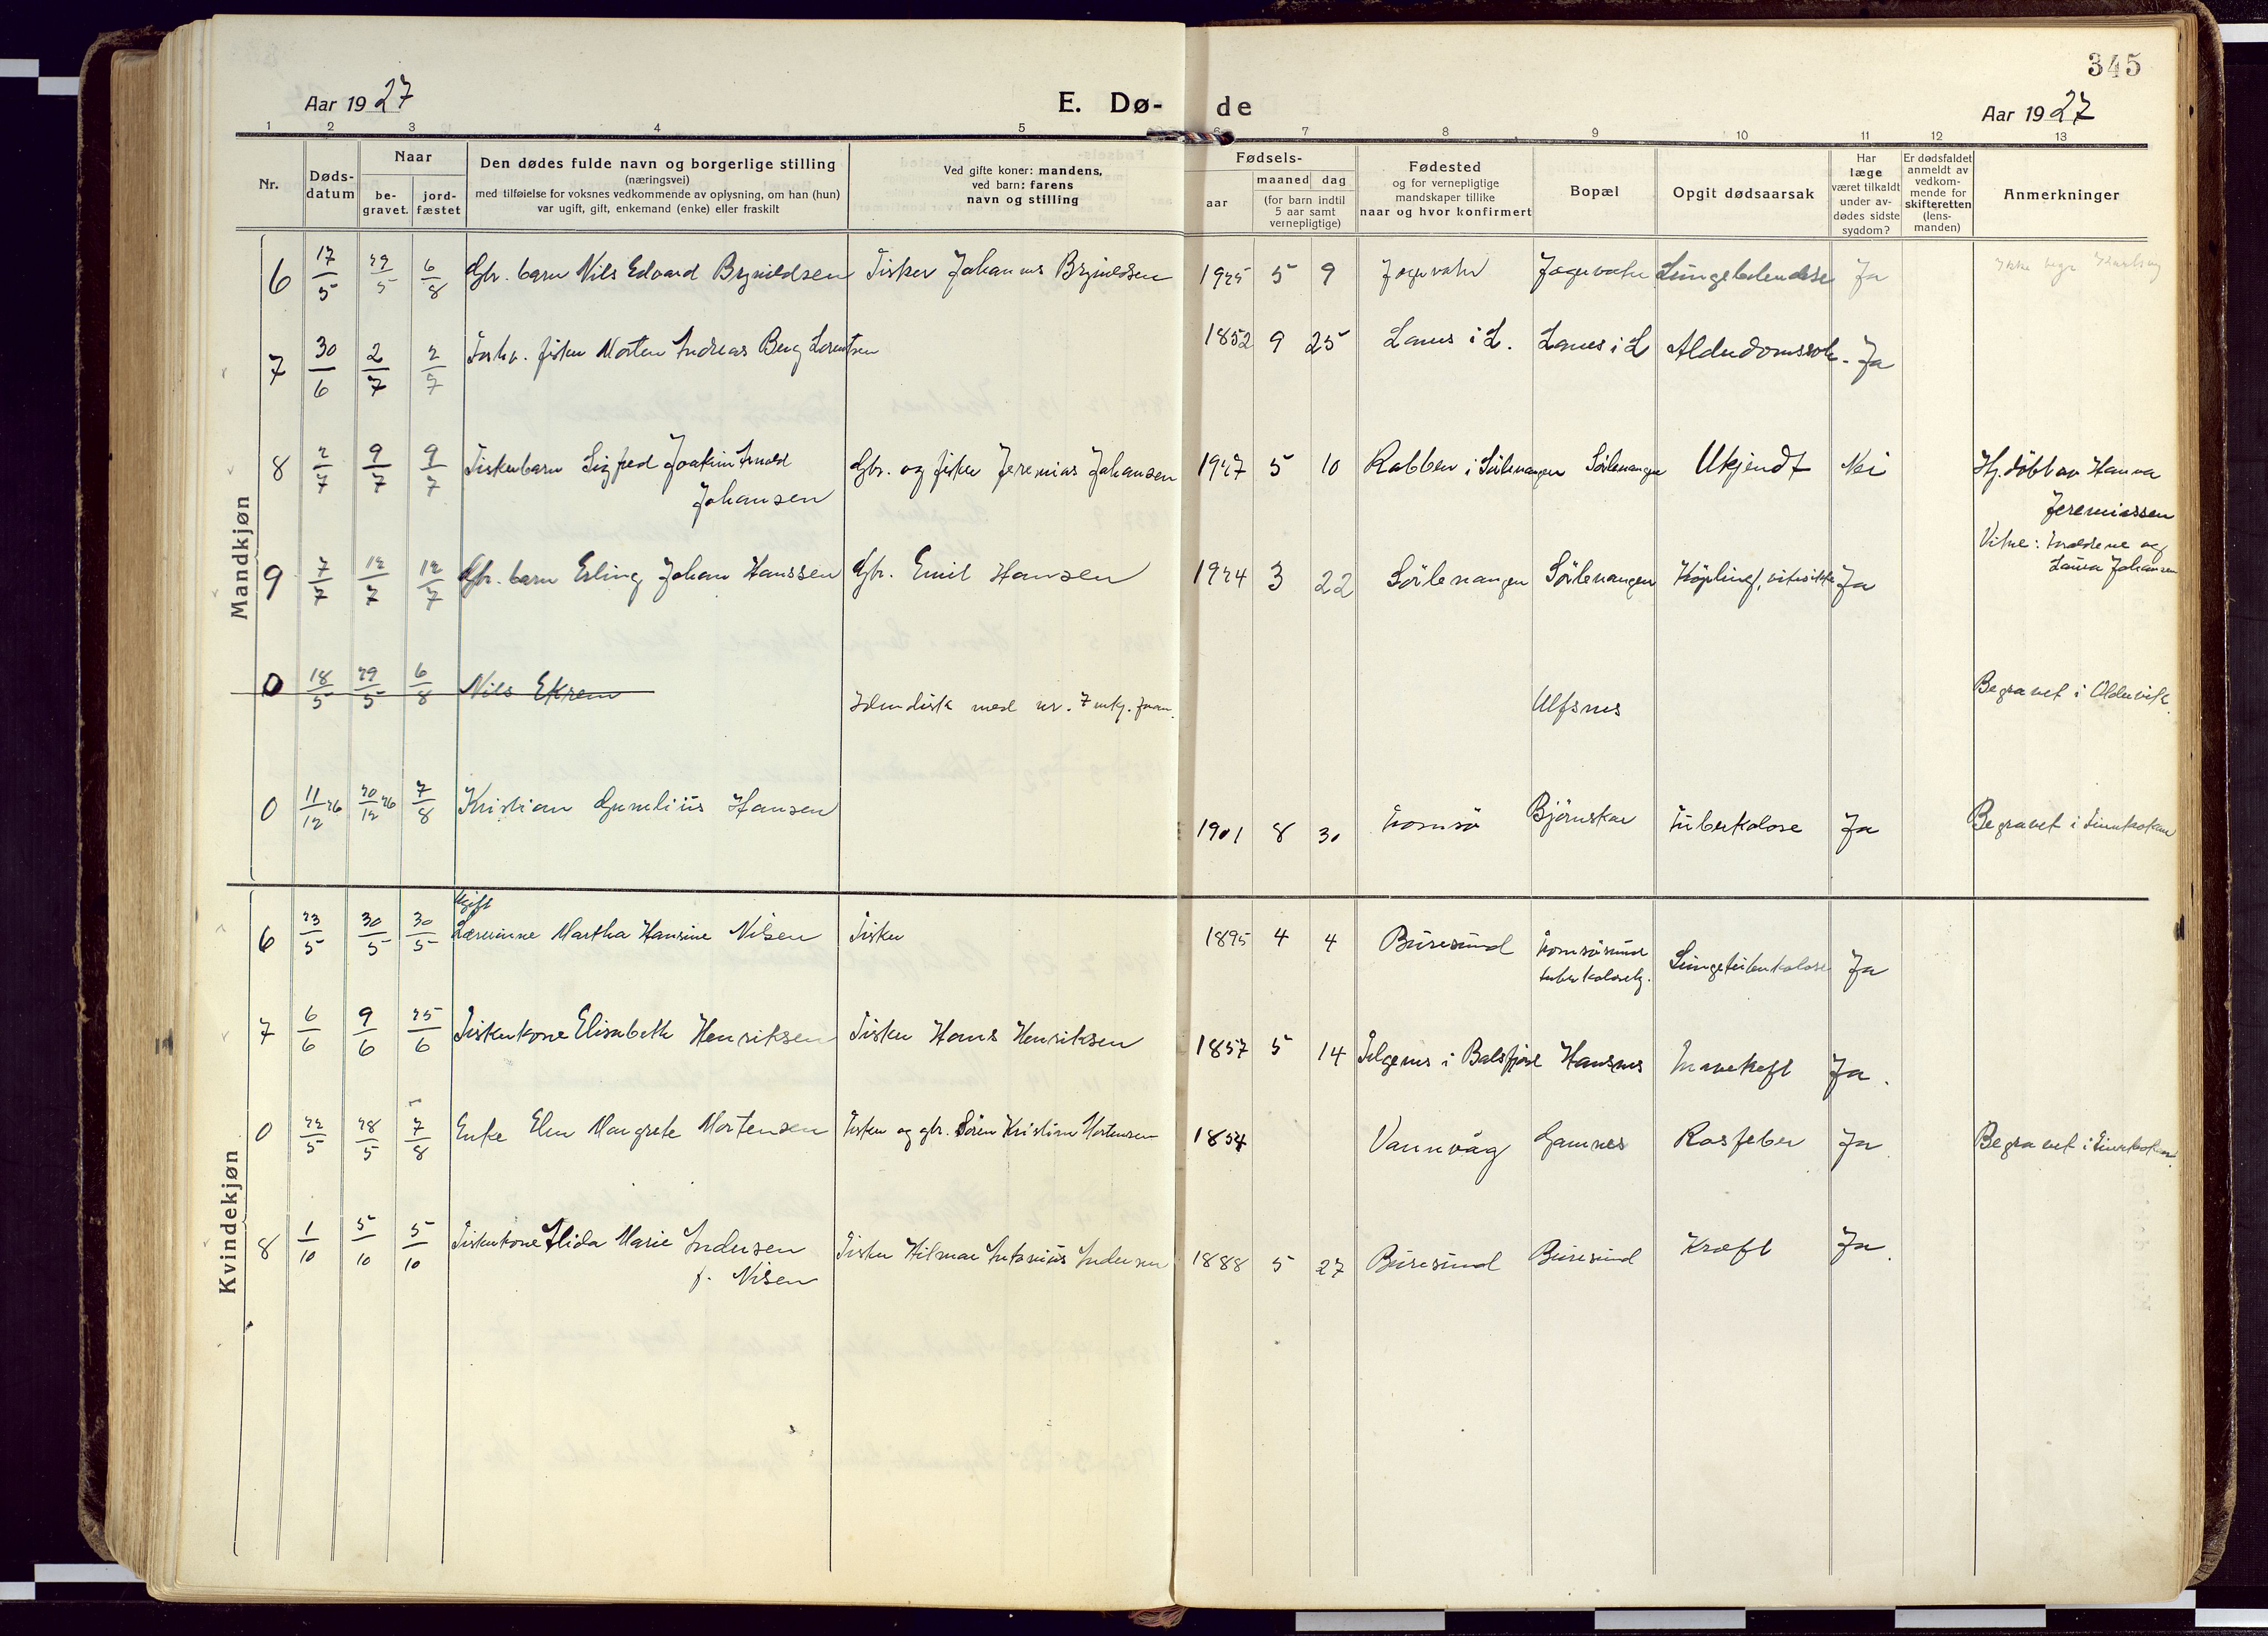 345
Aar 1927
E. Dø-
de
Aar 1927
1 2 3 4 5 6 7 8 9 10 11 12 13
Nr.
Døds-
datum
Naar
be-
gravet.
jord-
fæstet
Den dødes fulde navn og borgerlige stilling
(næringsvei)
med tilføielse for voksnes vedkommende av oplysning, om han (hun)
var ugift, gift, enkemand (enke) eller fraskilt
Ved gifte koner: mandens,
ved barn: farens
navn og stilling
Fødsels-
aar
maaned dag
(for barn indtil
5 aar samt
vernepligtige)
Fødested
og for vernepligtige
mandskaper tillike
naar og hvor konfirmert
Bopæl
Opgit dødsaarsak
Har
læge
været tilkaldt
under av-
dødes sidste
sygdom?
Er dødsfaldet
anmeldt av
vedkom-
mende for
skifteretten
(lens-
manden)
Anmerkninger
Mandkjøn
6 17/5 29/5 6/8 Gbr. barn Nils Edvard Brynildsen Fisker Johannes Brynildsen 1925 5 9 Jægervatn Jægervatn Lungebetendelse Ja
7 30/6 2/7 2/7 Forhv. fisker Morten Andreas Berg Lorentsen 1852 9 25 Lanes i L. Lanes i L Alderdomssvak. Ja
8 2/7 9/7 9/7 Fiskerbarn Sigfred Joakim Arnold
Johansen
Gbr. og fisker Jeremias Johansen 1927 5 10 Rabben i Sörlenangen Sörlenangen Ukjendt Nei Hj. döbt av Hanna
Jeremiassen
Vitne: Forældrene og
Laura Johansen
9 7/7 12/7 12/7 Gbr. barn Erling Johan Hanssen Gbr. Emil Hansen 1924 3 22 Sörlenangen Sörlenangen Ja
0 18/5 29/5 6/8 Nils Ekrem Identisk med nr. 7 Ulfsnes Begravet i Oldervik.
0 11/12 26 20/12 26 7/8 Kristian Hansen 1901 8 30 Tromsö Björnskar Tuberkolose Ja Begravet i Finnkroken
Kvindekjøn
Ugift
6 23/5 30/5 30/5 Lærerinne Martha Hansine Nilsen Fisker 1895 4 4 Buresund Tromsösund
tuberkolosehj.
Lungetuberkolose Ja
7 6/6 9/6 25/6 Fiskerkone Elisabeth Henriksen Fisker Hans Henriksen 1857 5 14 Selgenes i Balsfjord Hansnes Mavekræft Ja.
0 22/5 28/5 7/8 Enke Elen Margrete Mortensen Fisker og gbr. Sören Kristian Mortensen 1854 Vannvåg Gamnes Rosfeber Ja. Begravet i Finnkroken.
8 1/10 5/10 5/10 Fiskerkone Alida Marie Andersen
f. Nilsen
Fisker Hilmar Antonius Andersen 1888 5 27 Buresund Buresund Kræft Ja.